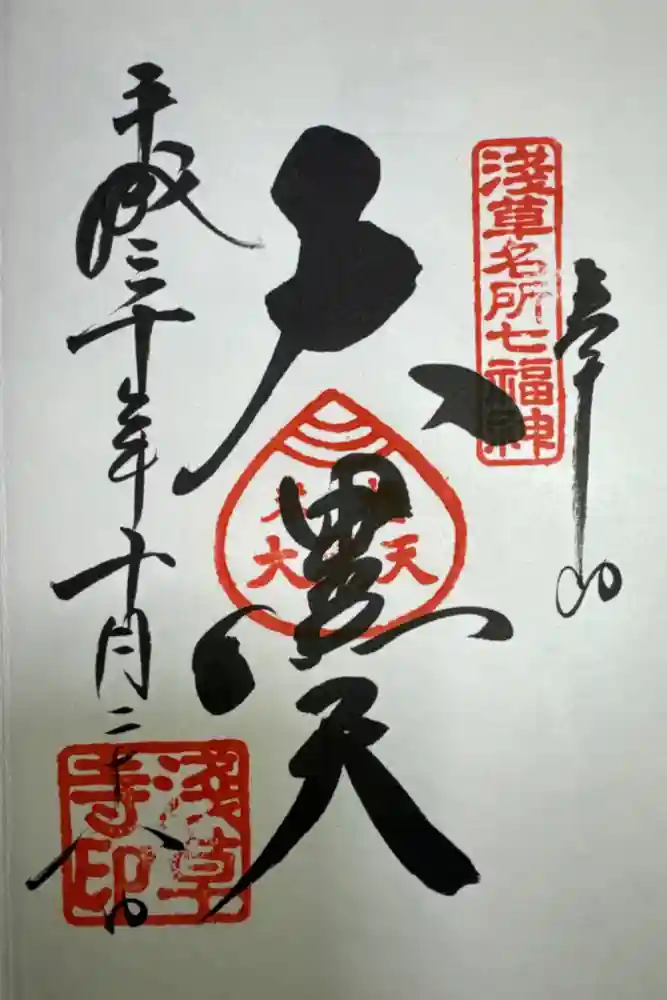 奉拝
淺草名所七福神
大黒天
平成三十年十月二十八日
淺草
寺印